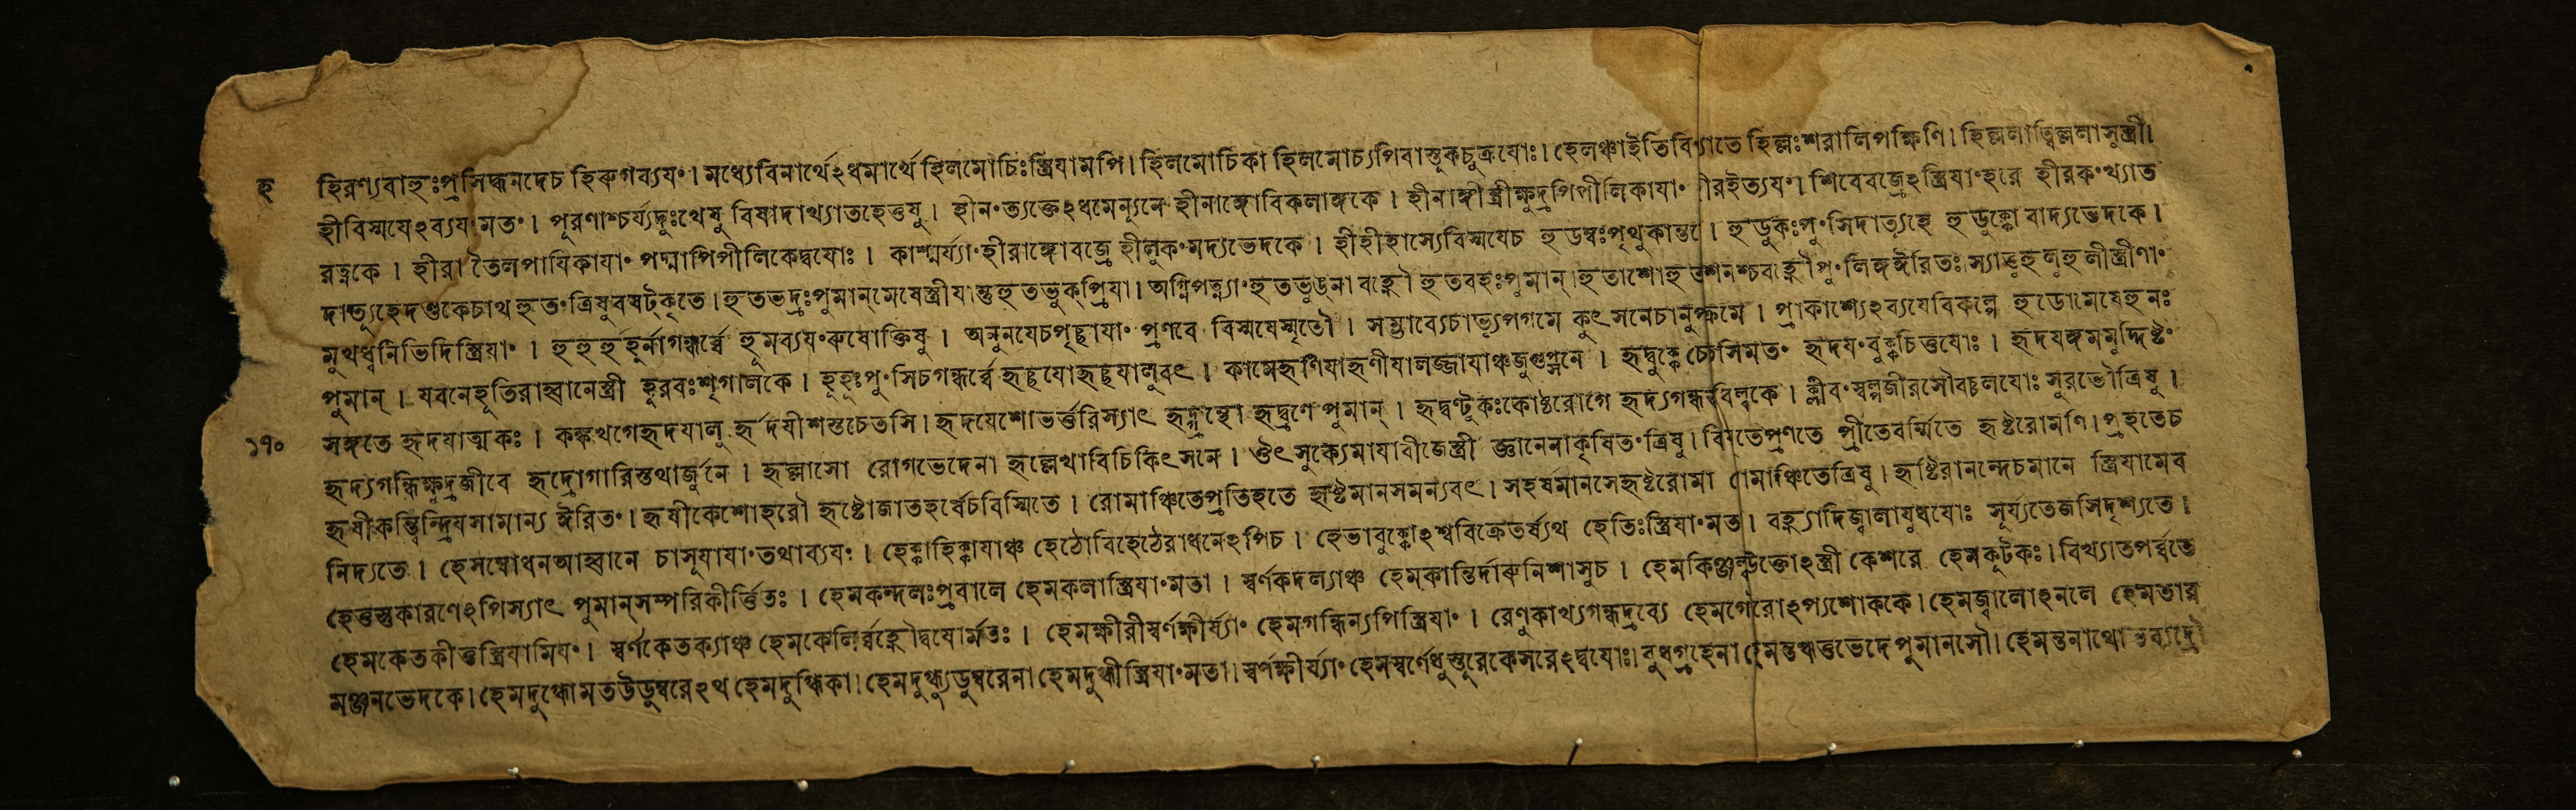 হ হিরণ্যবাহুঃপ্রসিদ্ধনদেচ হিৰুগব্যয়ং। মধ্যেবিনার্থেঽধমার্থে হিলমোচিঃস্ত্রিযামপি। হিলমোচিকা হিলমোচ্যপিবাস্তুকচুক্রযোঃ। হেলঞ্চাইতিবিখ্যাতে হিল্লঃশরালিপক্ষিণি। হিল্ললাত্বিল্ললাসুস্ত্রী।
হীবিস্ময়েঽব্যযংমতং। পূরণাশ্চর্য্যদুঃখেষু বিষাদাখ্যাতহেতুষু। হীনংত্যক্তেঽধমেন্যূনে হীনাঙ্গোবিকলাঙ্গকে। হীনাঙ্গীস্ত্রীক্ষুদ্রপিপীলিকাযাং হীরইত্যযং। শিবেবজ্রেঽস্ত্রিযাংহরে হীরকংখ্যাত
রত্নকে। হীরা তৈলপাযিকাযাং পদ্মাপিপীলিকেদ্বযোঃ। কাশ্মর্য্যাংহীরাঙ্গোবজ্রে হীলুকংমদ্যভেদকে। হীহীহাস্যেবিস্মযেচ হুডম্বঃপৃথুকান্তরে। হুডুকঃপুংসিদাত্যূহে হুডুক্কো বাদ্যভেদকে।
দাত্যূহেদণ্ডকেচাথ হুতংত্রিষুবষট্কৃতে। হুতভদ্রঃপুমান্মেষেস্ত্রীযান্তুহুতভুক্প্রিযা। অগ্নিপত্ন্যাংহুতভুঙ্না বহ্নৌ হুতবহঃপুমান্। হুতাশোহুতাশনশ্চবহ্নৌপুংলিঙ্গঈরিতঃ। স্যাত্তুহুলুহুলীস্ত্রীণাং
মুখধ্বনিভিদিস্ত্রিযাং। হুহুহুহূর্নাগন্ধর্ব্বে হূমব্যযংৰুষোক্তিষু। অনুনযেচপৃচ্ছাযাং প্রণবে বিস্মযেস্মৃতৌ। সম্ভাব্যেচাভ্যুপগমে কুৎসনেচানুপক্রমে। প্রাকাশ্যেঽব্যযেবিকল্পে হুডোমেষেহুনঃ
পুমান্। যবনেহূতিরাহ্বানেস্ত্রী হূরবঃশৃগালকে। হূহূঃপুংসিচগন্ধর্ব্বে হৃচ্ছযোহৃচ্ছযালুবৎ। কামেহৃণিযাহৃণীযালজ্জাযাঞ্চজুগুপ্সনে। হৃদ্বুক্কেচেতসিমতং হৃদযংবুক্কচিত্তযোঃ। হৃদযঙ্গমমুদ্দিষ্টং
১৭০ সঙ্গতে হৃদযাত্মকঃ। কঙ্কখগেহৃদযালু হৃদযীশস্তচেতসি। হৃদযেশোভর্ত্তরিস্যাৎ হৃদ্গ্রন্থো হৃদ্ব্রণে পুমান্। হৃদ্বণ্টুকঃকোষ্ঠরোগে হৃদ্যগন্ধস্তুবিল্বকে। ক্লীবংস্বল্পজীরসৌবর্চলযোঃ সুরভৌত্রিষু।
হৃদ্যগন্ধিক্ষুদ্রজীবে হৃদ্রোগারিস্তথার্জুনে। হৃল্লাসো রোগভেদেনা হৃল্লেখাবিচিকিৎসনে। ঔৎসুক্যেমাযাবীজেস্ত্রী জ্ঞানেনাকৃষিতংত্রিষু। বিস্মিতেপ্রণতে প্রীতেবর্ম্মিতে হৃষ্টরোমণি। প্রহতেচ
হৃষীকন্ত্বিন্দ্রিযসামান্য ঈরিতং। হৃষীকেশোহরৌ হৃষ্টোজাতহর্ষেচবিস্মিতে। রোমাঞ্চিতেপ্রতিহতে হৃষ্টমানসমন্যবৎ। সহর্ষমানসেহৃষ্টরোমা রোমাঞ্চিতেত্রিষু। হৃষ্টিরানন্দেচমানে স্ত্রিযামেব
নিদ্যতে। হেসম্বোধনআহ্বানে চাসূযাযাংতথাব্যযং। হেক্কাহিক্কাযাঞ্চ হেঠোবিহেঠেরাধনেঽপিচ। হেভাবুক্কোঽশ্ববিক্রেতর্য্যথ হেতিঃস্ত্রিযাংমতা। বহ্ন্যাদিজ্বালাযুধযোঃ সূর্য্যতেজসিদৃশ্যতে।
হেতুস্তুকারণেঽপিস্যাৎ পুমান্সম্পরিকীর্ত্তিতঃ। হেমকন্দলঃপ্রবালে হেমকলাস্ত্রিযাংমতা। স্বর্ণকদল্যাঞ্চ হেমকান্তির্দাৰুনিশাসুচ। হেমকিঞ্জল্কউক্তোঽস্ত্রী কেশরে হেমকূটকঃ। বিখ্যাতপর্ব্বতে
হেমকেতকীতুস্ত্রিযামিযং। স্বর্ণকেতক্যাঞ্চ হেমকেলির্ব্বহ্নৌদ্বযোর্মতঃ। হেমক্ষীরীস্বর্ণক্ষীর্য্যাং হেমগন্ধিন্যপিস্ত্রিযাং। রেণুকাখ্যগন্ধদ্রব্যে হেমগৌরোঽপ্যশোককে। হেমজ্বালোঽনলে হেমতার
মঞ্জনভেদকে। হেমদুগ্ধোমতউডুম্বরেঽথ হেমদুগ্ধিকা। হেমদুগ্ধ্যুডুম্বরেনা হেমদুগ্ধীস্ত্রিযাংমতা। স্বর্ণক্ষীর্য্যাং হেমস্বর্ণেধুস্তূরেকেসরেঽদ্বযোঃ। বুধগ্রহেনা হেমন্তঋতুভেদেপুমানসৌ। হেমন্তনাথো